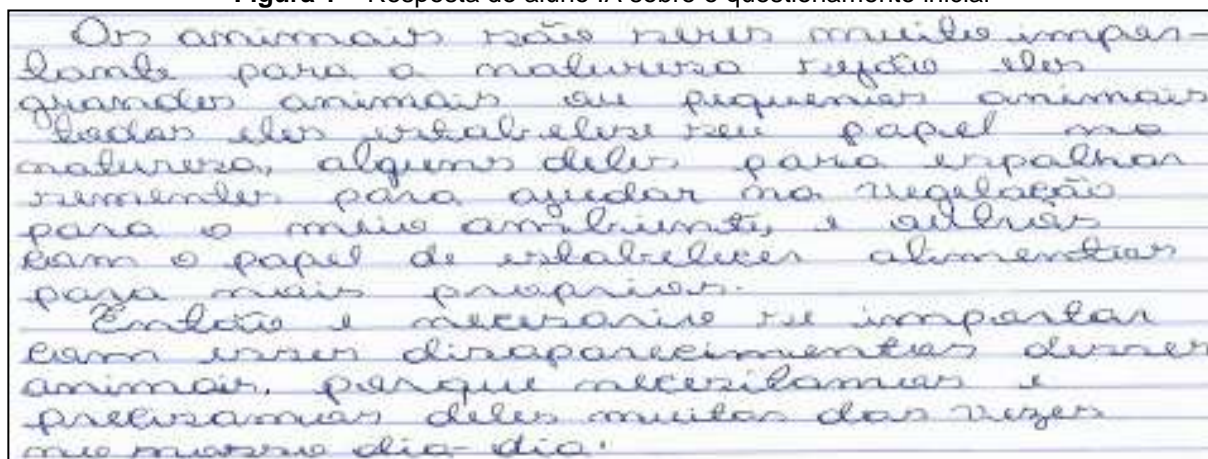 Figura 1 – Resposta do aluno IA sobre o questionamento inicial
Os animais são seres muito impor-
tante para a naturesa sejão eles
grandes animais ou pequenos animais
todos eles estabelese seu papel na
naturesa, alguns deles para espalhar
sementes para ajudar na vegetação
para o meio ambiente, e outros
com o papel de estabelecer alimentos
para nois proprios.
Então e necesario se importar
com esses disaparecimentos desses
animais, porque necesitamos e
precisamos deles muitas das vezes
no nosso dia-dia.